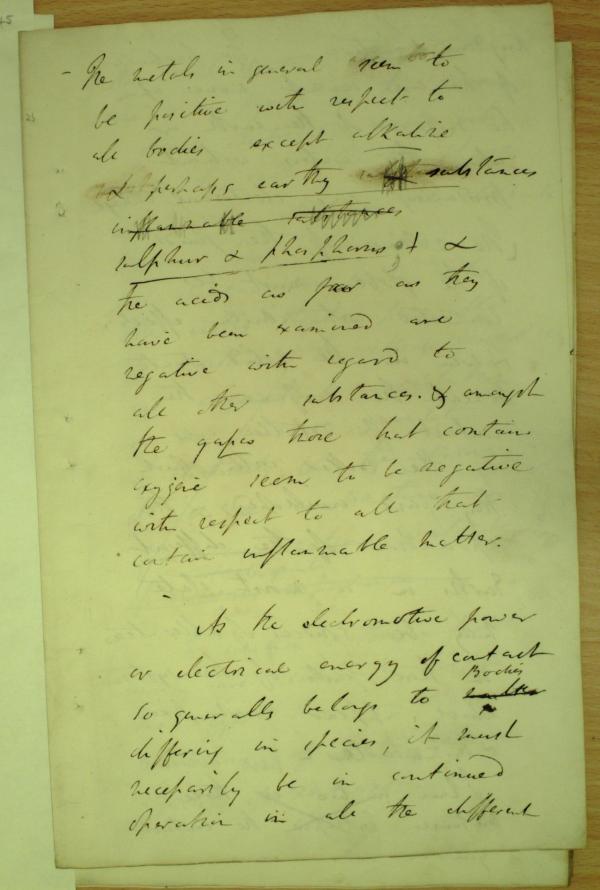 - The metals in general seem to
be positive with respect to
all bodies except alkaline
& perhaps earthy substances
inflammable substances
sulphur & phosphorus; + &
the acids as far as they
have been examined are
negative with regard to
all other substances. & amongst
the gases those that contain
oxygene seem to be negative
with respect to all that
contain inflammable matter.
- As the electromotive power
or electrical energy of contact
Bodies
so generally belongs to
differing in species, it must
necessarily be in continued
operation in all the different